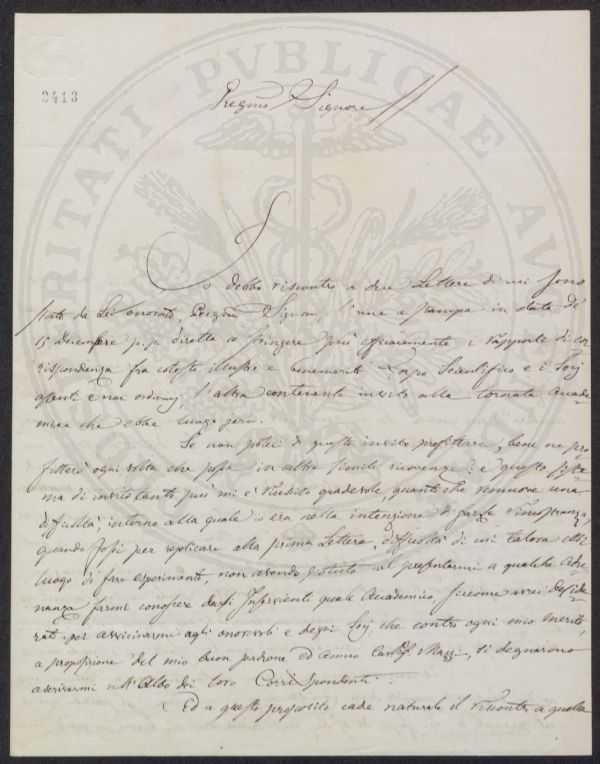 2413
Pregmo Signore
Io debbo riscontro a due Lettere di cui sono
stato da Lei onorato, Pregmo Signore; l'una a stampa in data de'
15 Decembre p. p. diretta a stringere più efficacemente i rapporti di cor
rispondenza fra cotesto illustre e benemerito Corpo Scientifico e i Socj
assenti e non ordinarj, l'altra contenente invito alla tornata Accade
mica che ebbe luogo jeri.
Se non potei di questo invito profittare, bene ne pro
fitterò ogni volta che possa in altre simili ricorrenze; e questo siste
ma di invito tanto più mi è riuscito gradevole, quanto che rimuove una
difficoltà, intorno alla quale io era nella intenzione di farle rimostranza,
quando fossi per replicare alla prima Lettera, difficoltà di cui talora ebbi
luogo di fare esperimento, non avendo potuto al presentarmi a qualche Adu
nanza farmi conoscere dagli Inservienti quale Accademico, siccome avrei deside
rato per avvicinarmi agli onorevoli e degni Socj, che contro ogni mio merito,
a proposizione del mio buon padrone ed amico Mazzi, si degnarono
ascrivermi nell'Albo dei loro Corrispondenti.
Ed a questo proposito cade naturale il riscontro a quella
PUBLICAE